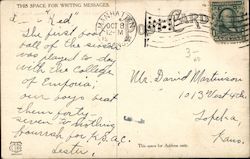 THIS SPACE FOR WRITING MESSAGES.
"Red"
The first foot
ball of the season
was played to day
with the College
of Emporia,
our boys beat
them forty-
seven to nothing
hurrah for K.S.A.C.
Lester.
MANHATTAN
OCT 8
12-M
CARD
Mr. David Mortinson
1013 West 4th.
Topeka,
Kans.
This space for Address only.